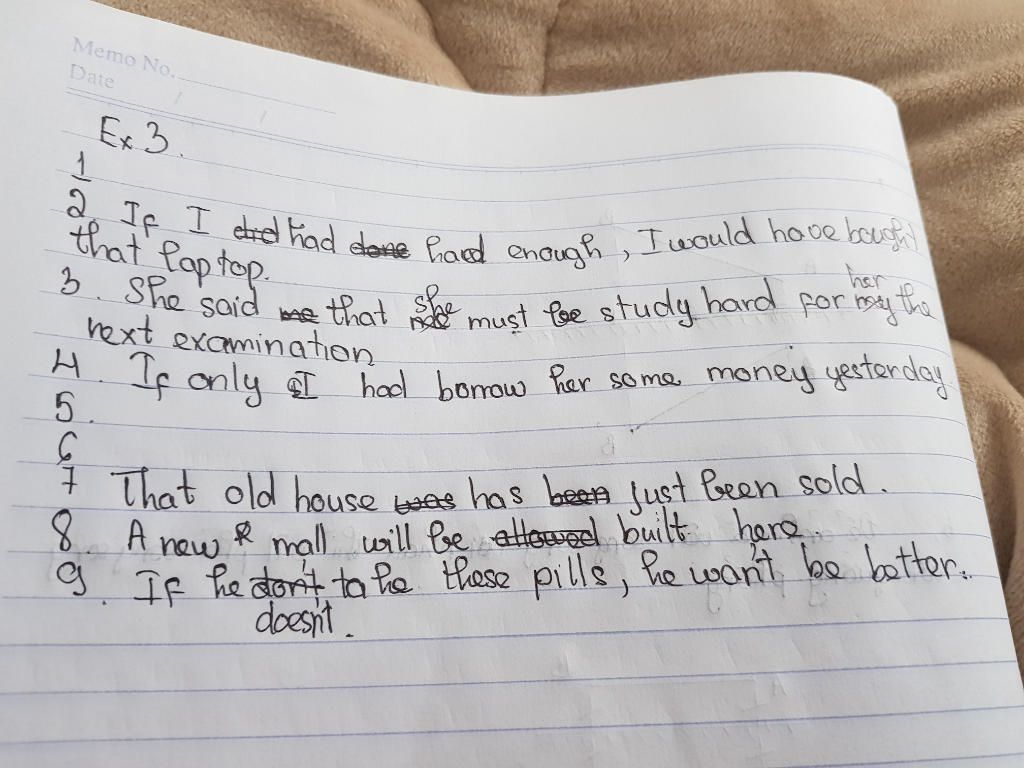 Memo No.
Date / /
Ex 3.
1
2. If I did had done hard enough, I would have bought
that laptop.
3. She said me that she must be study hard for her the
next examination
4. If only I had borrow her some money yesterday
5.
6
7 That old house was has been just been sold.
8. A new mall will be allowed built here.
9. If he don't take these pills, he wan't be better.
doesn't.